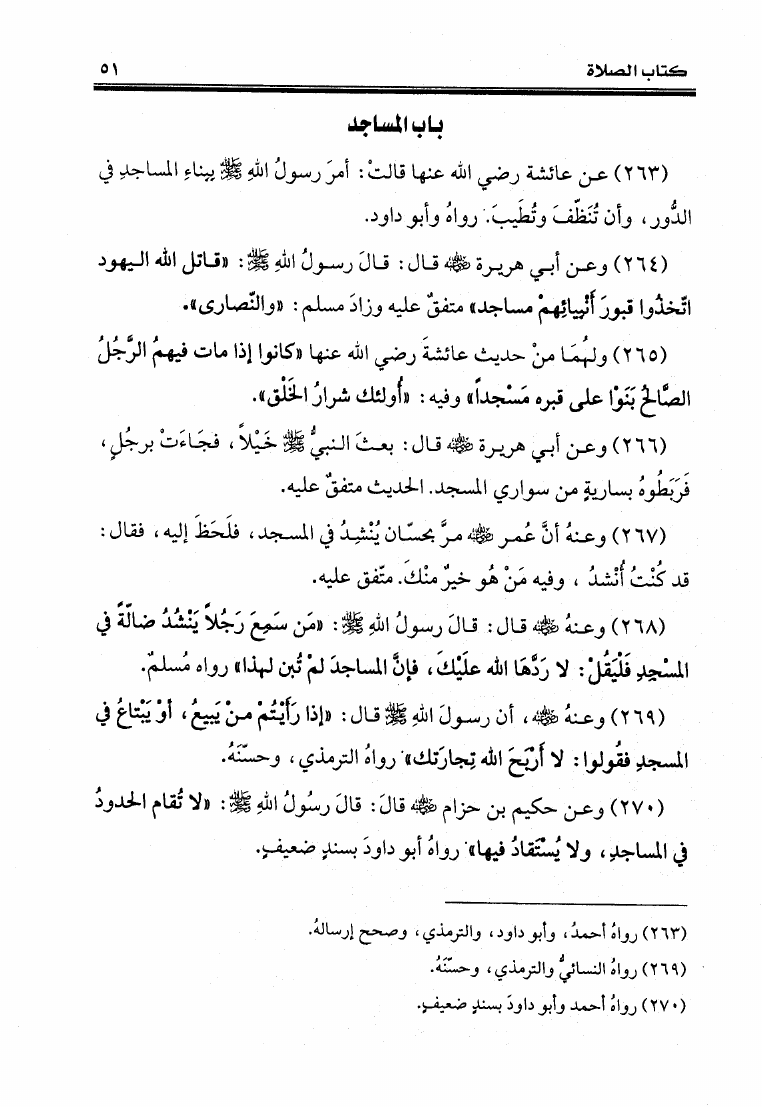 كتاب الصلاة ٥١
باب المساجد
(٢٦٣) عن عائشة رضي الله عنها قالتْ: أمرَ رسولُ اللهِ ﷺ ببناءِ المساجدِ في
الدُّور، وأن تُنَظَّفَ وتُطَيبَ. رواهُ وأبو داود.
(٢٦٤) وعن أبي هريرة ﷺ قال: قالَ رسولُ اللهِ ﷺ: «قاتل الله اليهود
اتّخذُوا قبورَ أَنْبِيائِهمْ مساجد» متفقٌ عليه وزادَ مسلم: «والنّصارى».
(٢٦٥) ولهُمَا منْ حديث عائشةَ رضي الله عنها «كانوا إذا مات فيهمُ الرَّجُلُ
الصَّالحُ بَنَوْا على قبره مَسْجداً» وفيه: «أُولئك شرارُ الخَلْق».
(٢٦٦) وعن أبي هريرة ﷺ قال: بعثَ النبيُّ ﷺ خَيْلاً، فجَاءَتْ برجُلٍ،
فَرَبَطُوهُ بساريةٍ من سواري المسجد. الحديث متفقٌ عليه.
(٢٦٧) وعنهُ أنَّ عُمر ﷺ مرَّ بحسّان يُنْشِدُ في المسجد، فلَحَظَ إليه، فقال:
قد كُنْتُ أُنْشدُ، وفيه مَنْ هُو خيرٌ منْكَ. متّفق عليه.
(٢٦٨) وعنهُ ﷺ قال: قالَ رسولُ اللهِ ﷺ: «مَن سَمِعَ رَجُلاً يَنْشُدُ ضالّةً في
المسْجِدِ فَلْيَقُلْ: لا رَدَّهَا الله علَيْكَ، فإنَّ المساجدَ لمْ تُبن لهذا» رواه مُسلمٌ.
(٢٦٩) وعنهُ ﷺ، أن رسولَ اللهِ ﷺ قال: «إذا رَأَيْتُمْ منْ يَبيعُ، أوْ يَبْتاعُ في
المسجدِ فقُولوا: لا أَرْبَحَ الله تِجارَتك» رواهُ الترمذي، وحسّنَهُ.
(٢٧٠) وعن حكيم بن حزام ﷺ قالَ: قالَ رسُولُ اللهِ ﷺ: «لا تُقام الحدودُ
في المساجدِ، ولا يُسْتَقادُ فيها» رواهُ أبو داودَ بسندٍ ضعيفٍ.
(٢٦٣) رواهُ أحمدُ، وأبو داود، والترمذي، وصحح إرسالهُ.
(٢٦٩) رواهُ النسائيُّ والترمذي، وحسّنَهُ.
(٢٧٠) رواهُ أحمد وأبو داودَ بسندٍ ضعيفٍ.